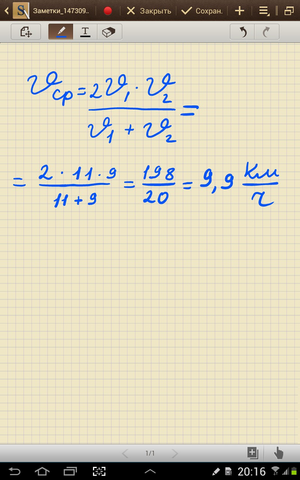 Заметки_147309... Закрыть Сохран.
T
𝑣ср = 2𝑣₁ · 𝑣₂ / 𝑣₁ + 𝑣₂ =
= 2 · 11 · 9 / 11 + 9 = 198 / 20 = 9,9 км / ч
1/1
20:16